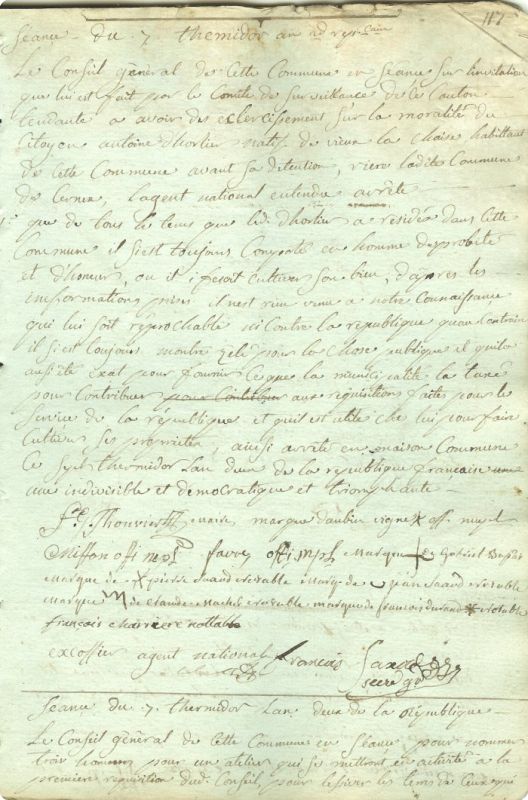 117
Séance du 7 themidor an 2d rep.caine
Le Conseil général de Cette Commune en Séance Sur linvitation
que lui est fait par le Comité de Surveillance de le Canton
tendante a avoir des eclercisement Sur la moralité du
Citoyen antoine dhortier natif de vieux la Chaise habittant
de Cette Commune avant Sa détention, rière ladite Commune
de Cernex, Lagent national entendu arrête
que de tous le tems que le d. dhortier a résidé dans Cette
Commune il Sest toujours Comporté en homme de probité
et dhoneur, ou il i fesoit Cultiver Son bien, d'apres les
informations prises il nest rien venu a notre Connaissance
qui lui Soit réprochable ni Contre la république quau Contraire
il Si est toujours montré zelé pour la Chose publique il quil a
ausi été Exat pour fournir Ce que la municipalité la taxé
pour Contribuer aux requisitions faites pour le
Service de la république et quil est utile che lui pour faire
Cultiver Ses propriétés, ainsi arrêté en maison Commune
Ce Sept thermidor Lan deux de la république francaise une
indivisible et démocratique et triomphante
maire, marque daubin vigne off. mupl
off. mpl. favre off. mpl marque + de Gabriel
marque de pierre notable marq. de Jean notable
marque de Claude notable marque de francois durand notable
françois charriere nottable
excoffier agent national françois
secre
Séance du 7. thermidor Lan deux de la République
Le Conseil général de Cette Commune en Séance pour nommer
trois hommes pour un atelier qui Se mettront en activité a la
première requisition dud. Conseil, pour lessiver les terres de Ceux qui